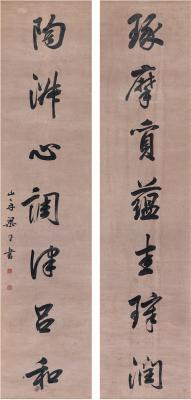 琢摩賓蘊圭璋潤
陶淑心調律呂和
山舟梁同書